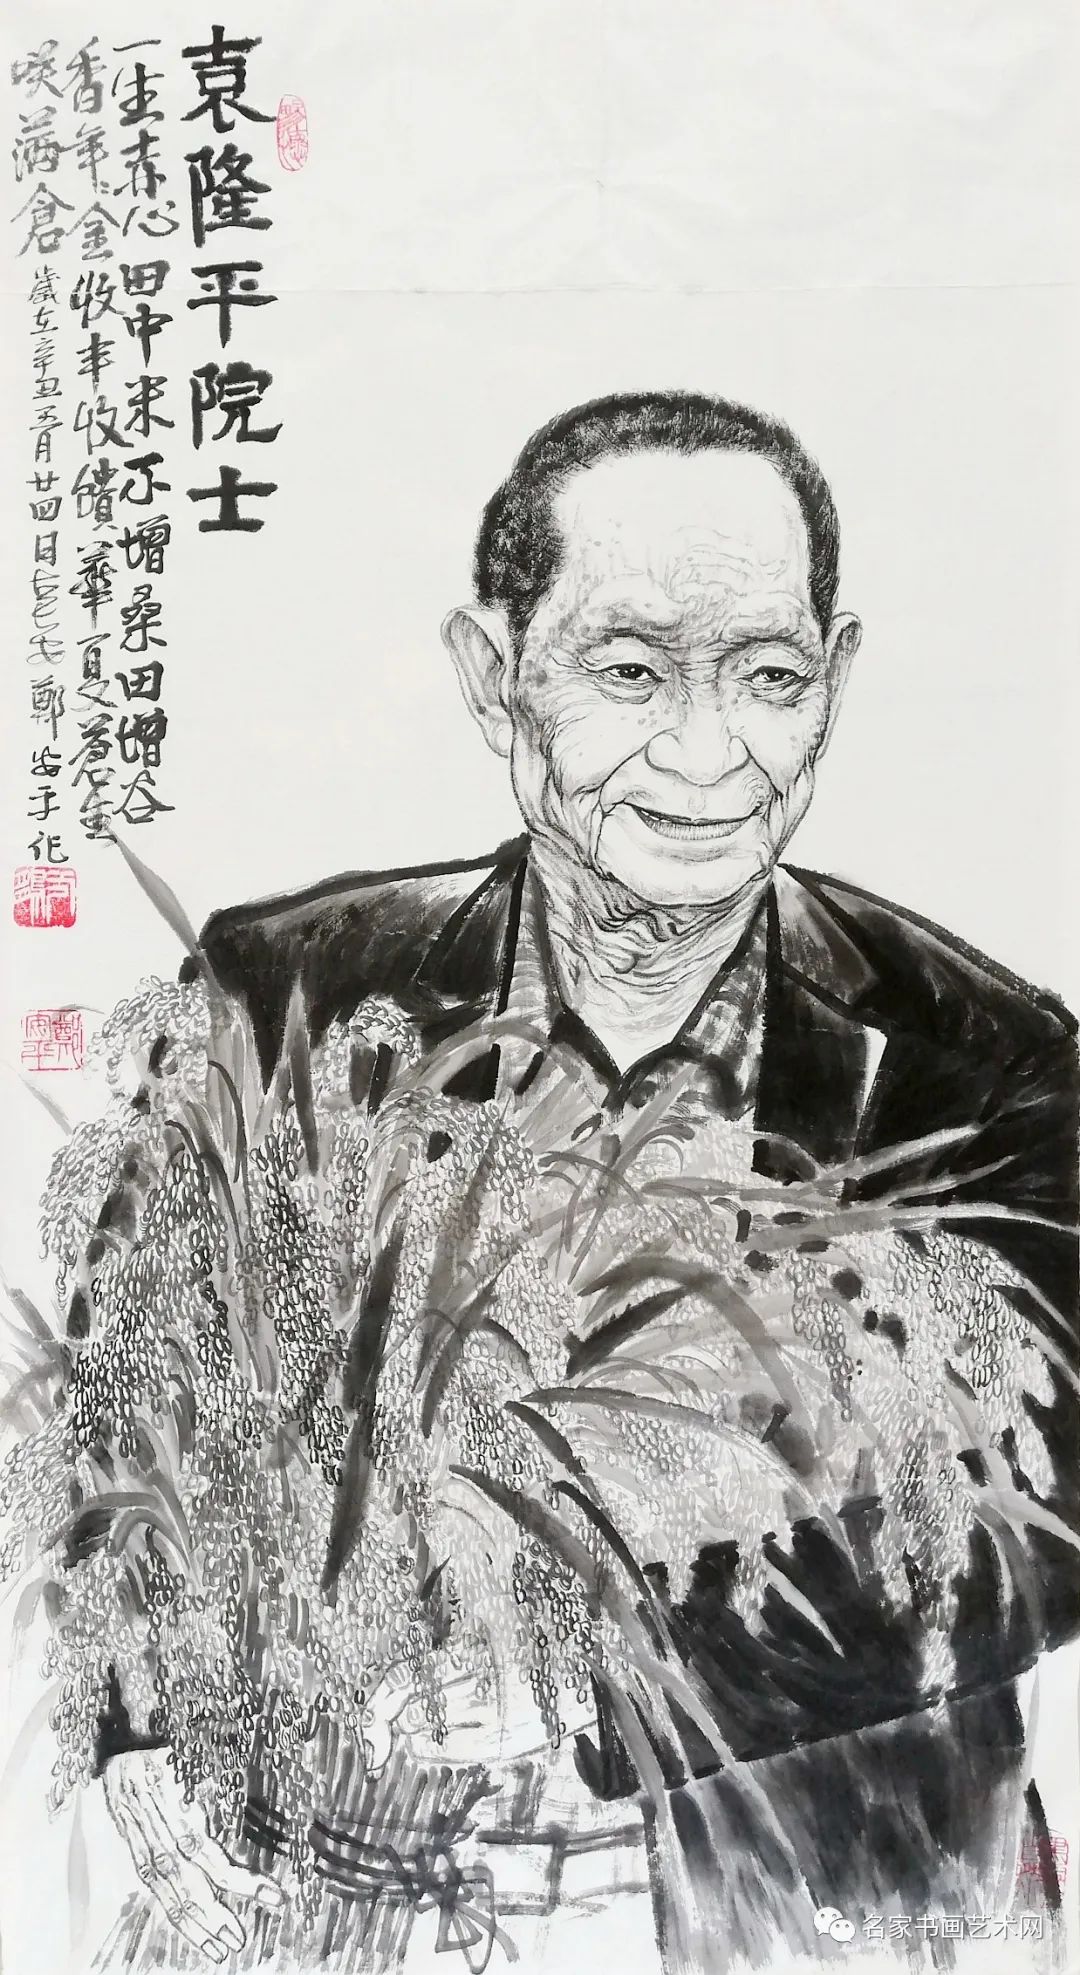 袁隆平院士
一生赤心田中米不增桑田增谷
香年年金收丰收馈华夏苍生
咲满倉
歲在辛丑五月廿四日 鄭安平作
名家书画艺术网